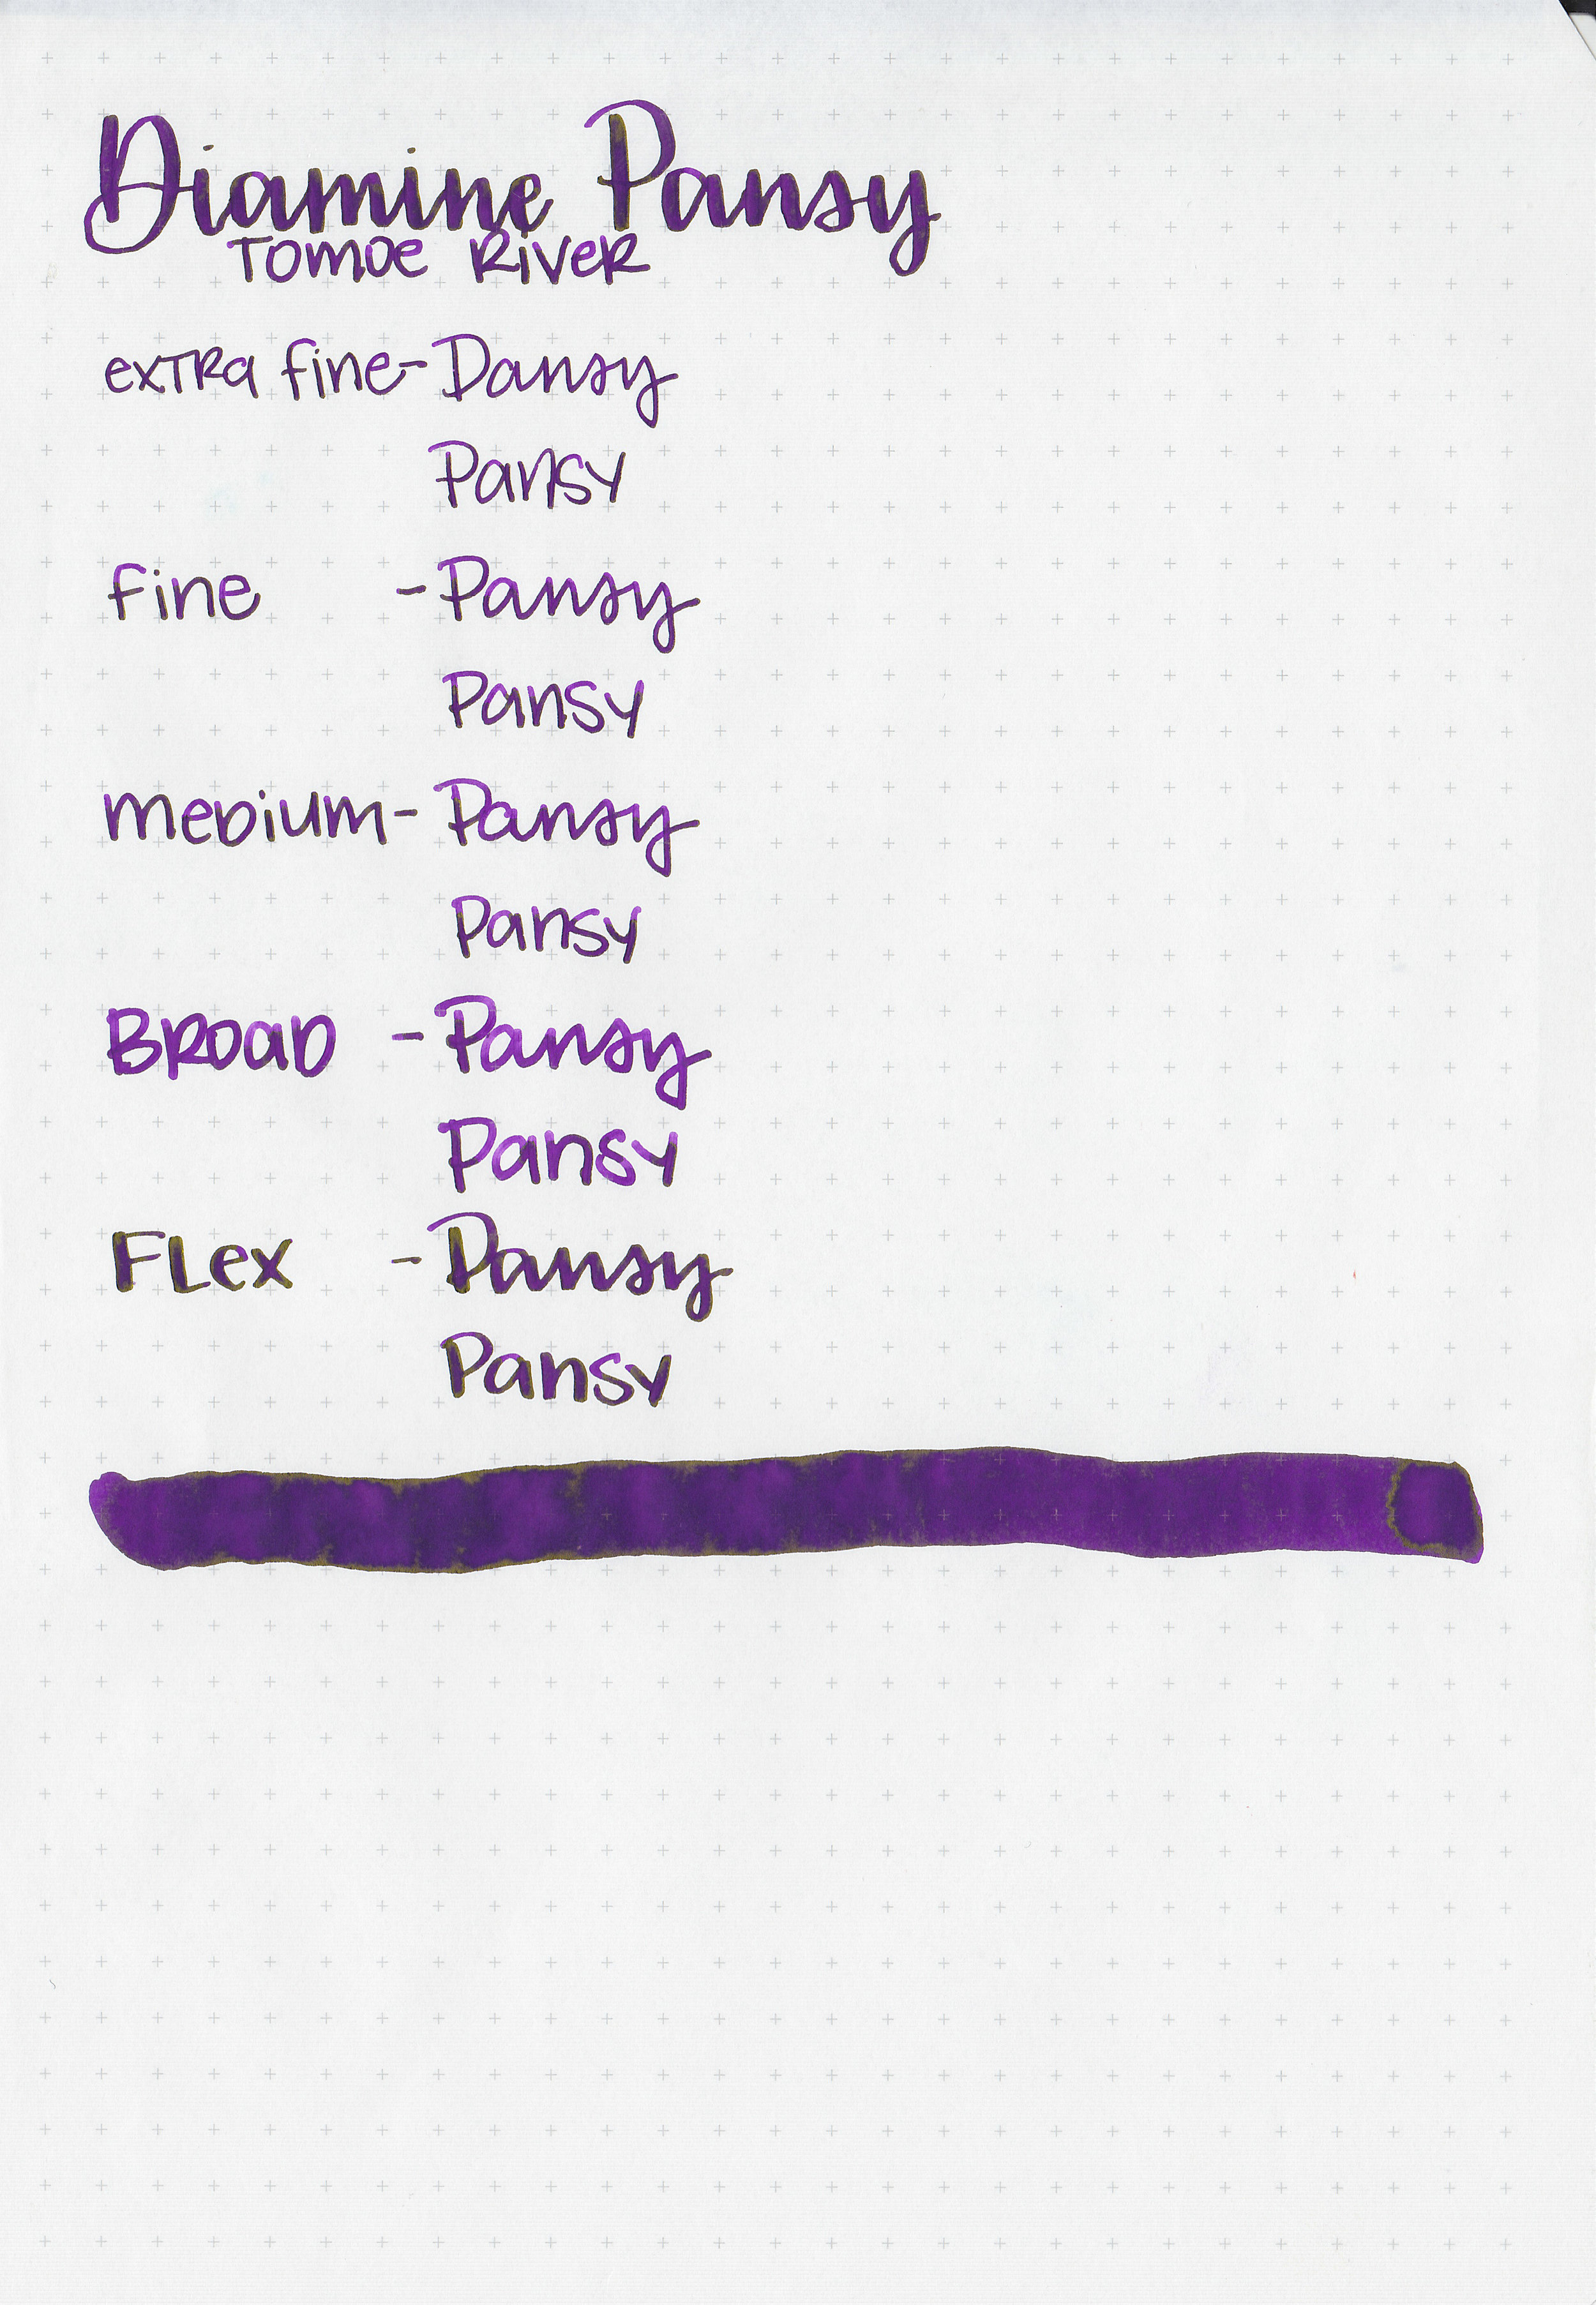 Diamine Pansy
Tomoe River
extra fine - Pansy
Pansy
fine - Pansy
Pansy
medium - Pansy
Pansy
Broad - Pansy
Pansy
Flex - Pansy
Pansy